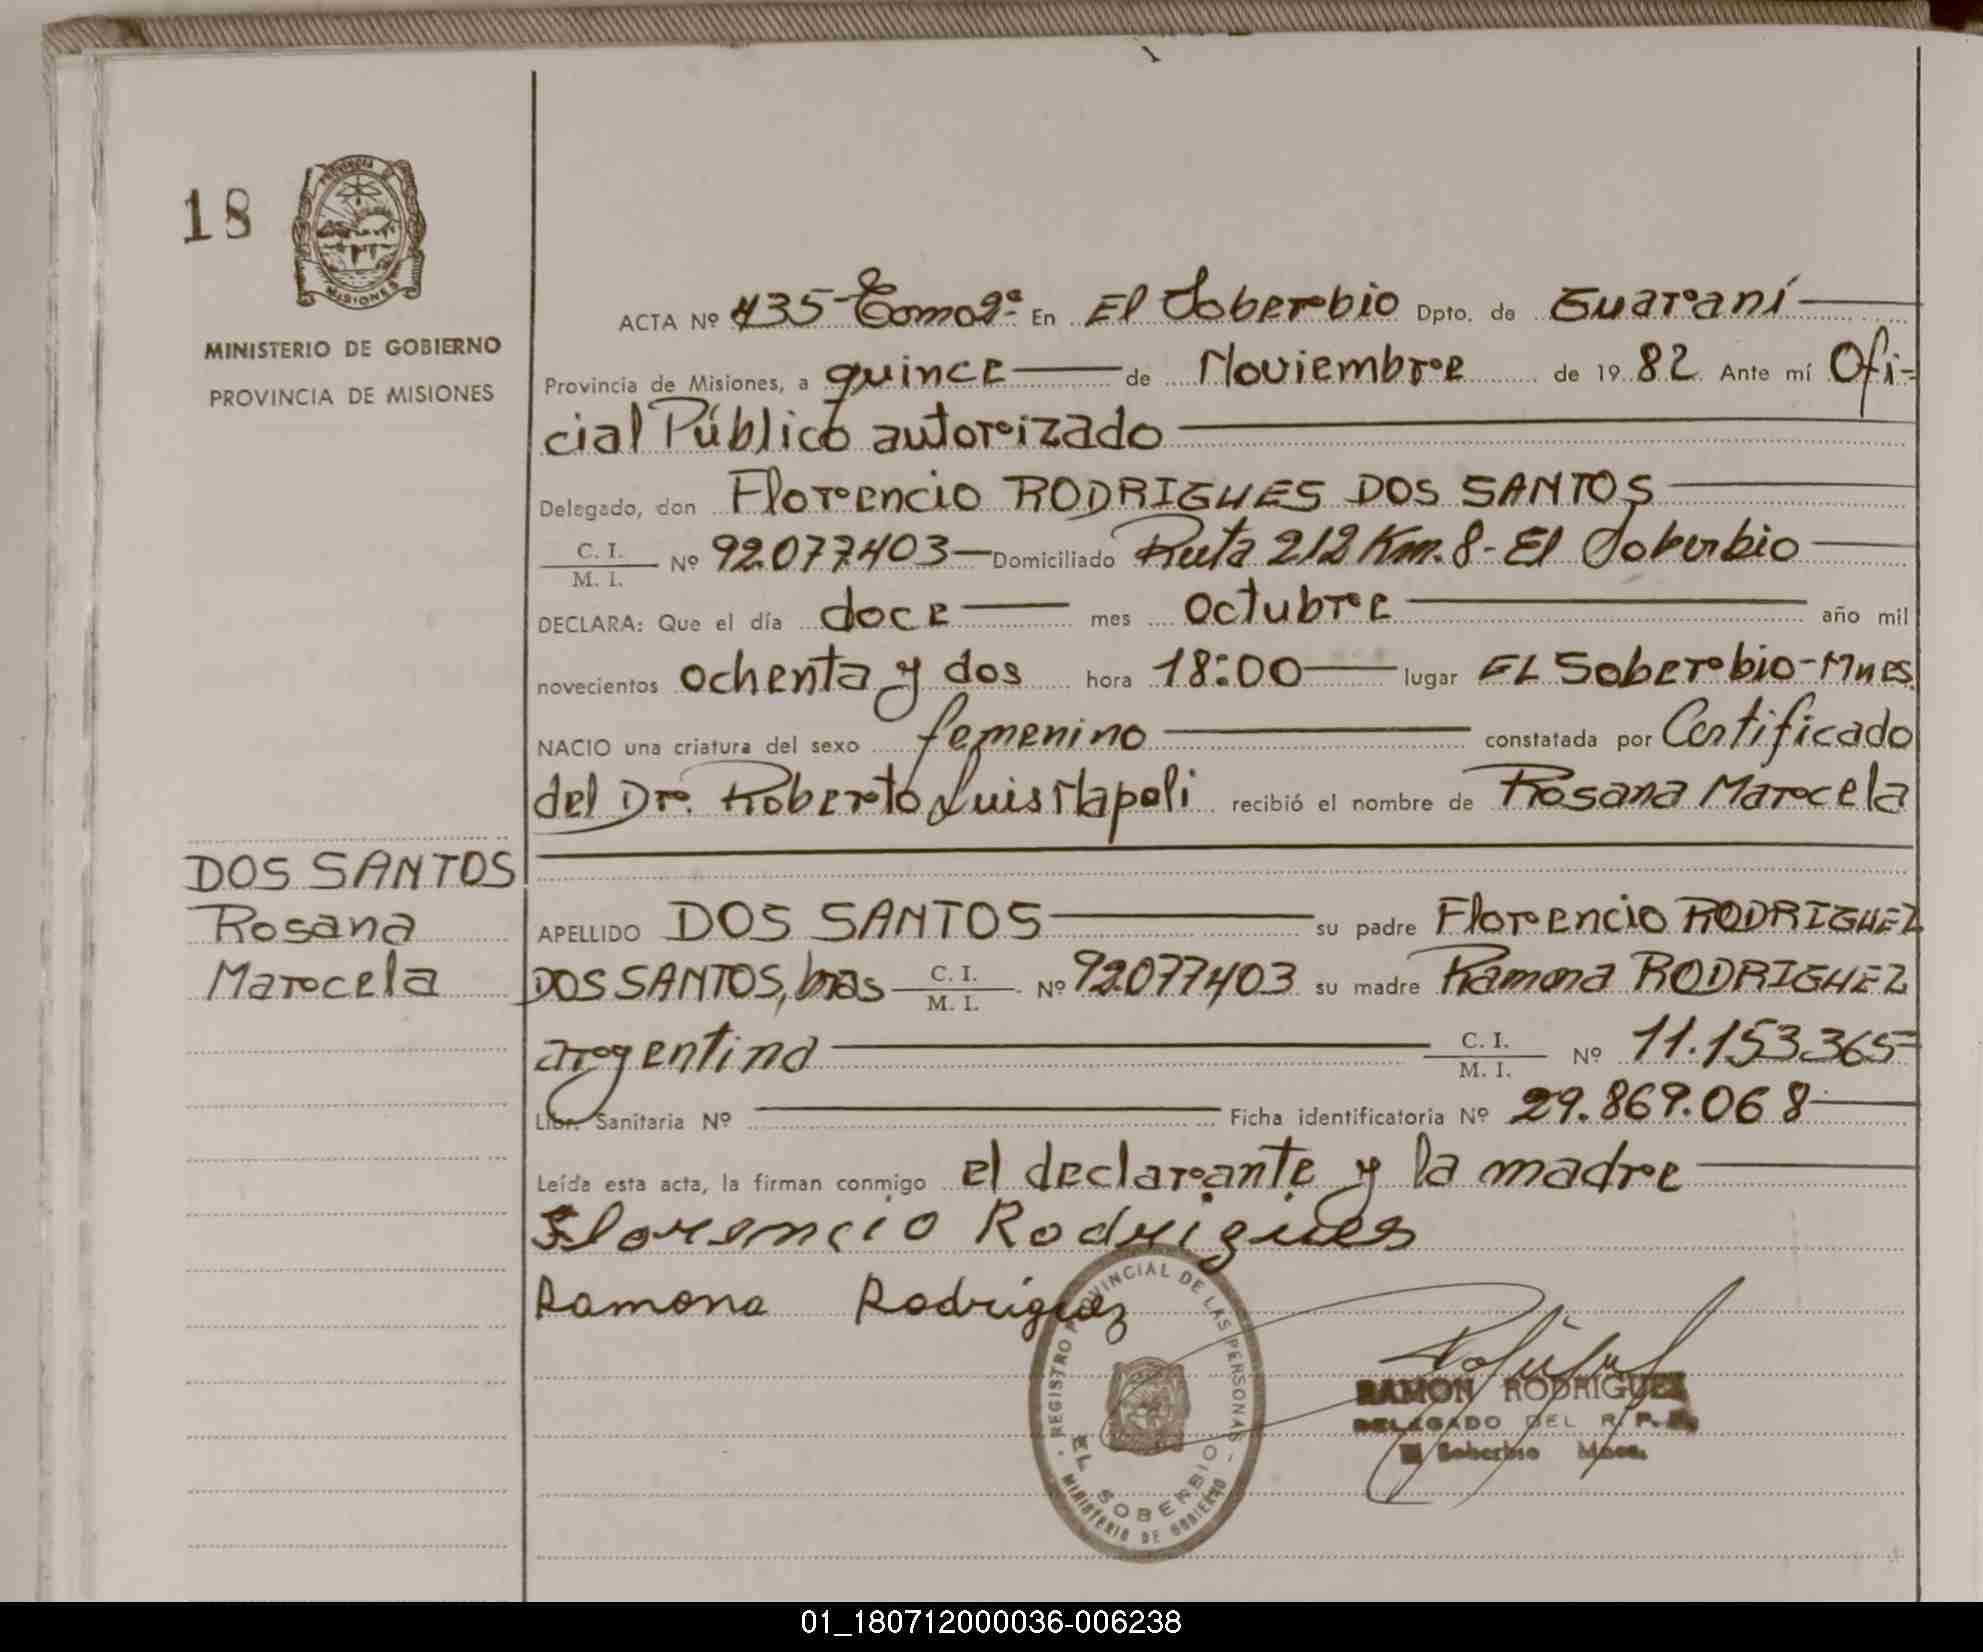 18
PROVINCIA DE
MISIONES
MINISTERIO DE GOBIERNO
PROVINCIA DE MISIONES
ACTA Nº 435-Tomo 2º- En El Soberbio Dpto. de Guaraní
Provincia de Misiones, a quince de Noviembre de 1982 Ante mí Ofi-
cial Público autorizado
Delegado, don Florencio RODRIGUES DOS SANTOS
C. I.
M. I. Nº 92.077403 Domiciliado Ruta 212 Km. 8- El Soberbio
DECLARA: Que el día doce mes octubre año mil
novecientos ochenta y dos hora 18:00 lugar EL Soberbio-Mnes.
NACIO una criatura del sexo femenino constatada por Certificado
del Dr. Roberto Luis Napoli recibió el nombre de Rosana Marcela
DOS SANTOS
Rosana
Marcela
APELLIDO DOS SANTOS su padre Florencio RODRIGUEZ
DOS SANTOS, bras C. I.
M. I. Nº 92.077403 su madre Ramona RODRIGUEZ
argentina C. I.
M. I. Nº 11.153.365
Libr. Sanitaria Nº Ficha identificatoria Nº 29.869.068
Leída esta acta, la firman conmigo el declarante y la madre
Florencio Rodrigues
Ramona Rodriguez
REGISTRO PROVINCIAL DE LAS PERSONAS
EL SOBERBIO
MINISTERIO DE GOBIERNO
RAMON RODRIGUEZ
DELEGADO DEL R. P. P.
El Soberbio Mnes.
01_180712000036-006238